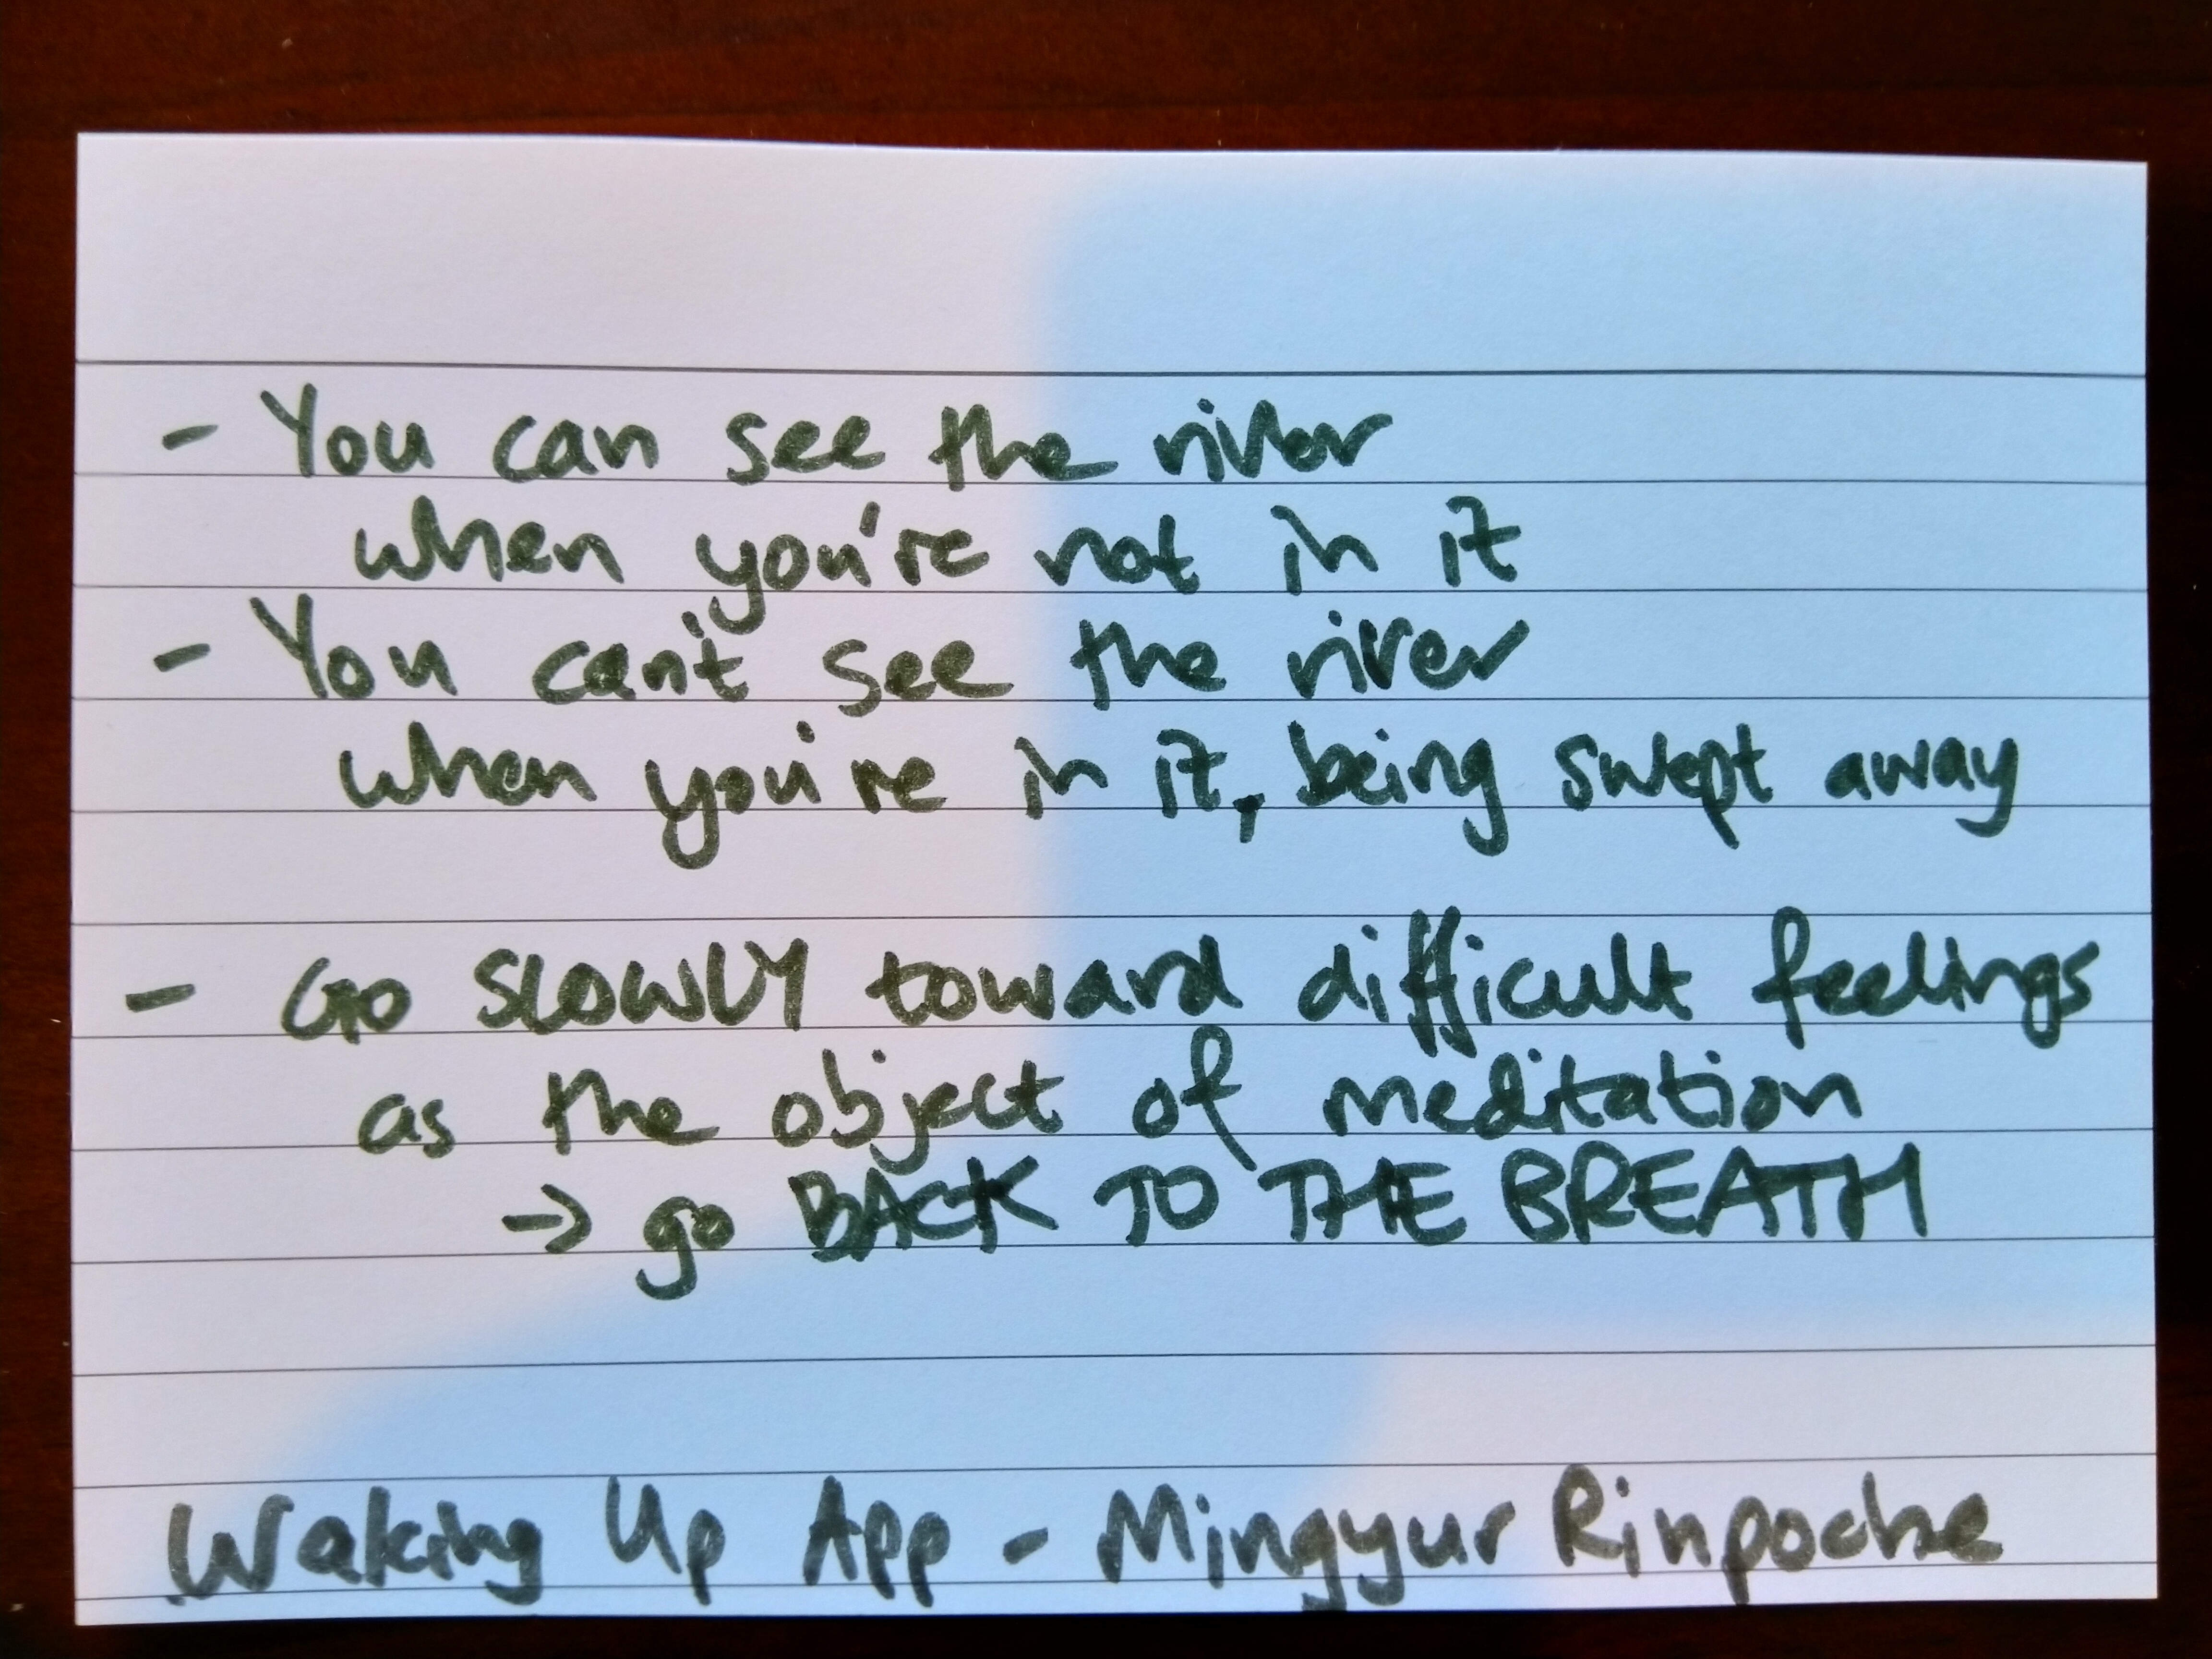 - You can see the river
when you're not in it
- You can't see the river
when you're in it, being swept away
- Go SLOWLY toward difficult feelings
as the object of meditation
→ go BACK TO THE BREATH
Waking Up App - Mingyur Rinpoche